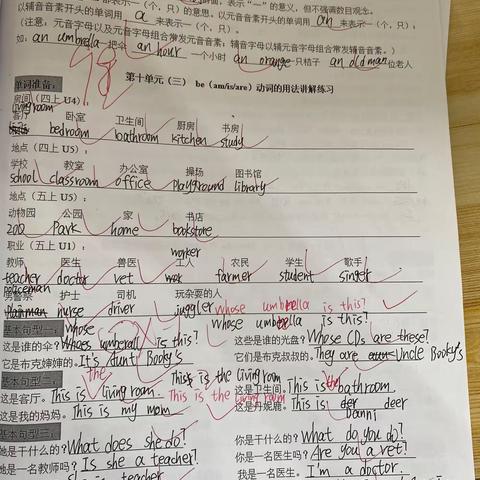 以辅音音素开头的单词用 a 来表示一（个，只）的意思。以元音音素开头的单词用 an 来表示一（个，只）。
（注意，元音字母以及元音字母组合常发元音音素；辅音字母以辅元音字母组合常发辅音音素。）
如：an umbrella 一把伞 an hour 一个小时 an orange 一只桔子 an old man 一位老人
98
第十单元（三） be（am/is/are）动词的用法讲解练习
单词准备：
房间（四上 U4）：
livingroom
客厅 卧室 卫生间 厨房 书房
bedroom bathroom kitchen study
地点（四上 U5）：
学校 教室 办公室 操场 图书馆
school classroom office playground library
地点（五上 U5）：
动物园 公园 家 书店
zoo Park home bookstore
职业（五上 U1）： worker
教师 医生 兽医 工人 农民 学生 歌手
teacher doctor vet farmer student singer
policeman
男警察 护士 司机 玩杂耍的人
nurse driver juggler
whose umbrella is this?
基本句型一： whose whose umbrella is this?
这是谁的伞？ is this? 这些是谁的光盘？Whose CDs are these?
它是布克婶婶的。It's Aunt Booky's 它们是布克叔叔的。They are Uncle Booky's
基本句型二： the This is the living room
这是客厅。This is living room. This is the living room 这是卫生间。This is the bathroom
这是我的妈妈。This is my mom 这是丹妮鹿。This is deer
Danni
基本句型三：
她是干什么的？What does she do? 你是干什么的？What do you do?
她是一名教师吗？Is she a teacher? 你是一名医生吗？Are you a vet?
teacher 我是一名医生。I'm a doctor.